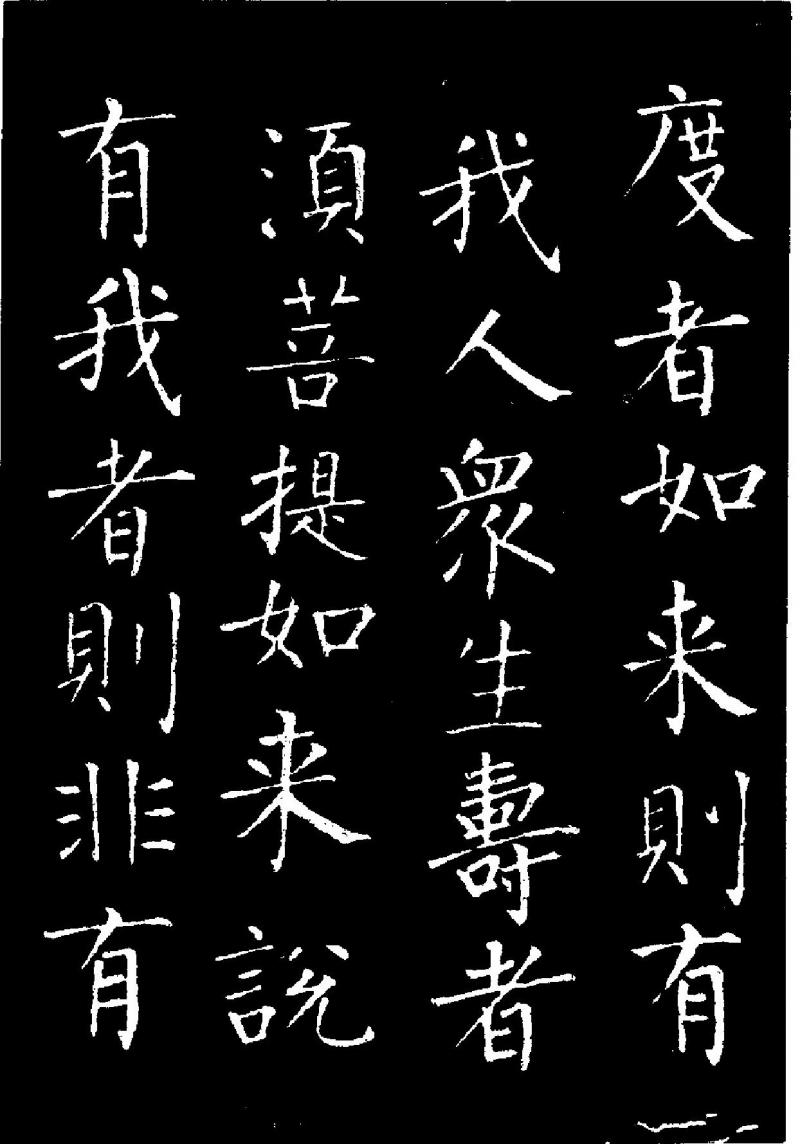 度者如来則有
我人衆生壽者
湏菩提如来說
有我者則非有